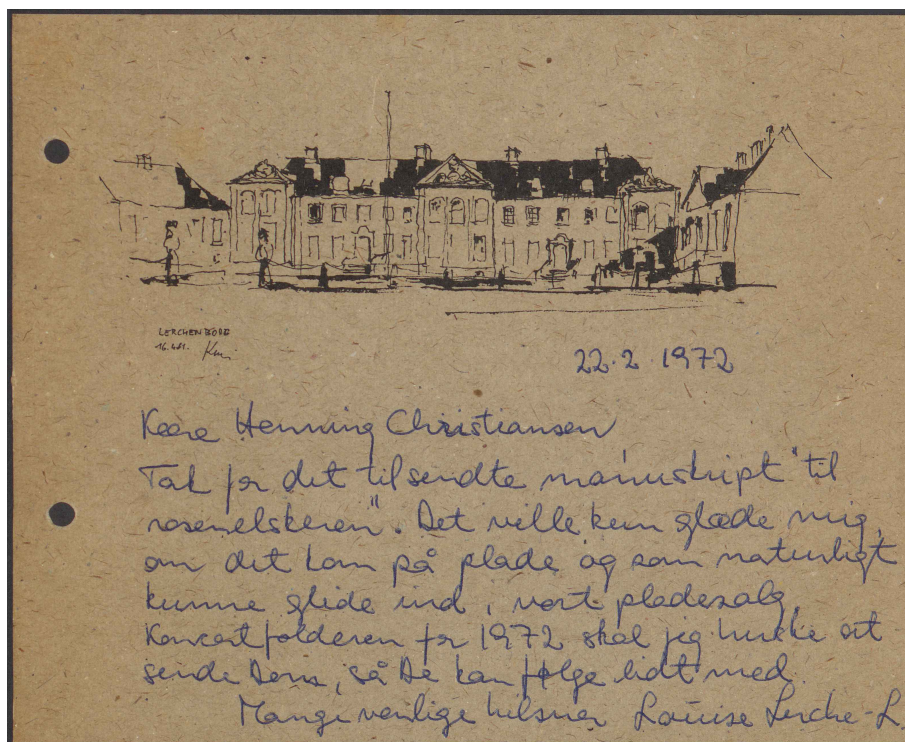 LERCHENBORG
22.2.1972
Kære Henning Christiansen
Tak for det tilsendte manuskript "til
rosenelskeren". Det ville kun glæde mig,
om det kom på plade og som naturligt
kunne glide ind i vort pladesalg.
Koncertfolderen for 1972 skal jeg huske at
sende Dem, så De kan følge lidt med.
Mange venlige hilsner Louise Lerche-L